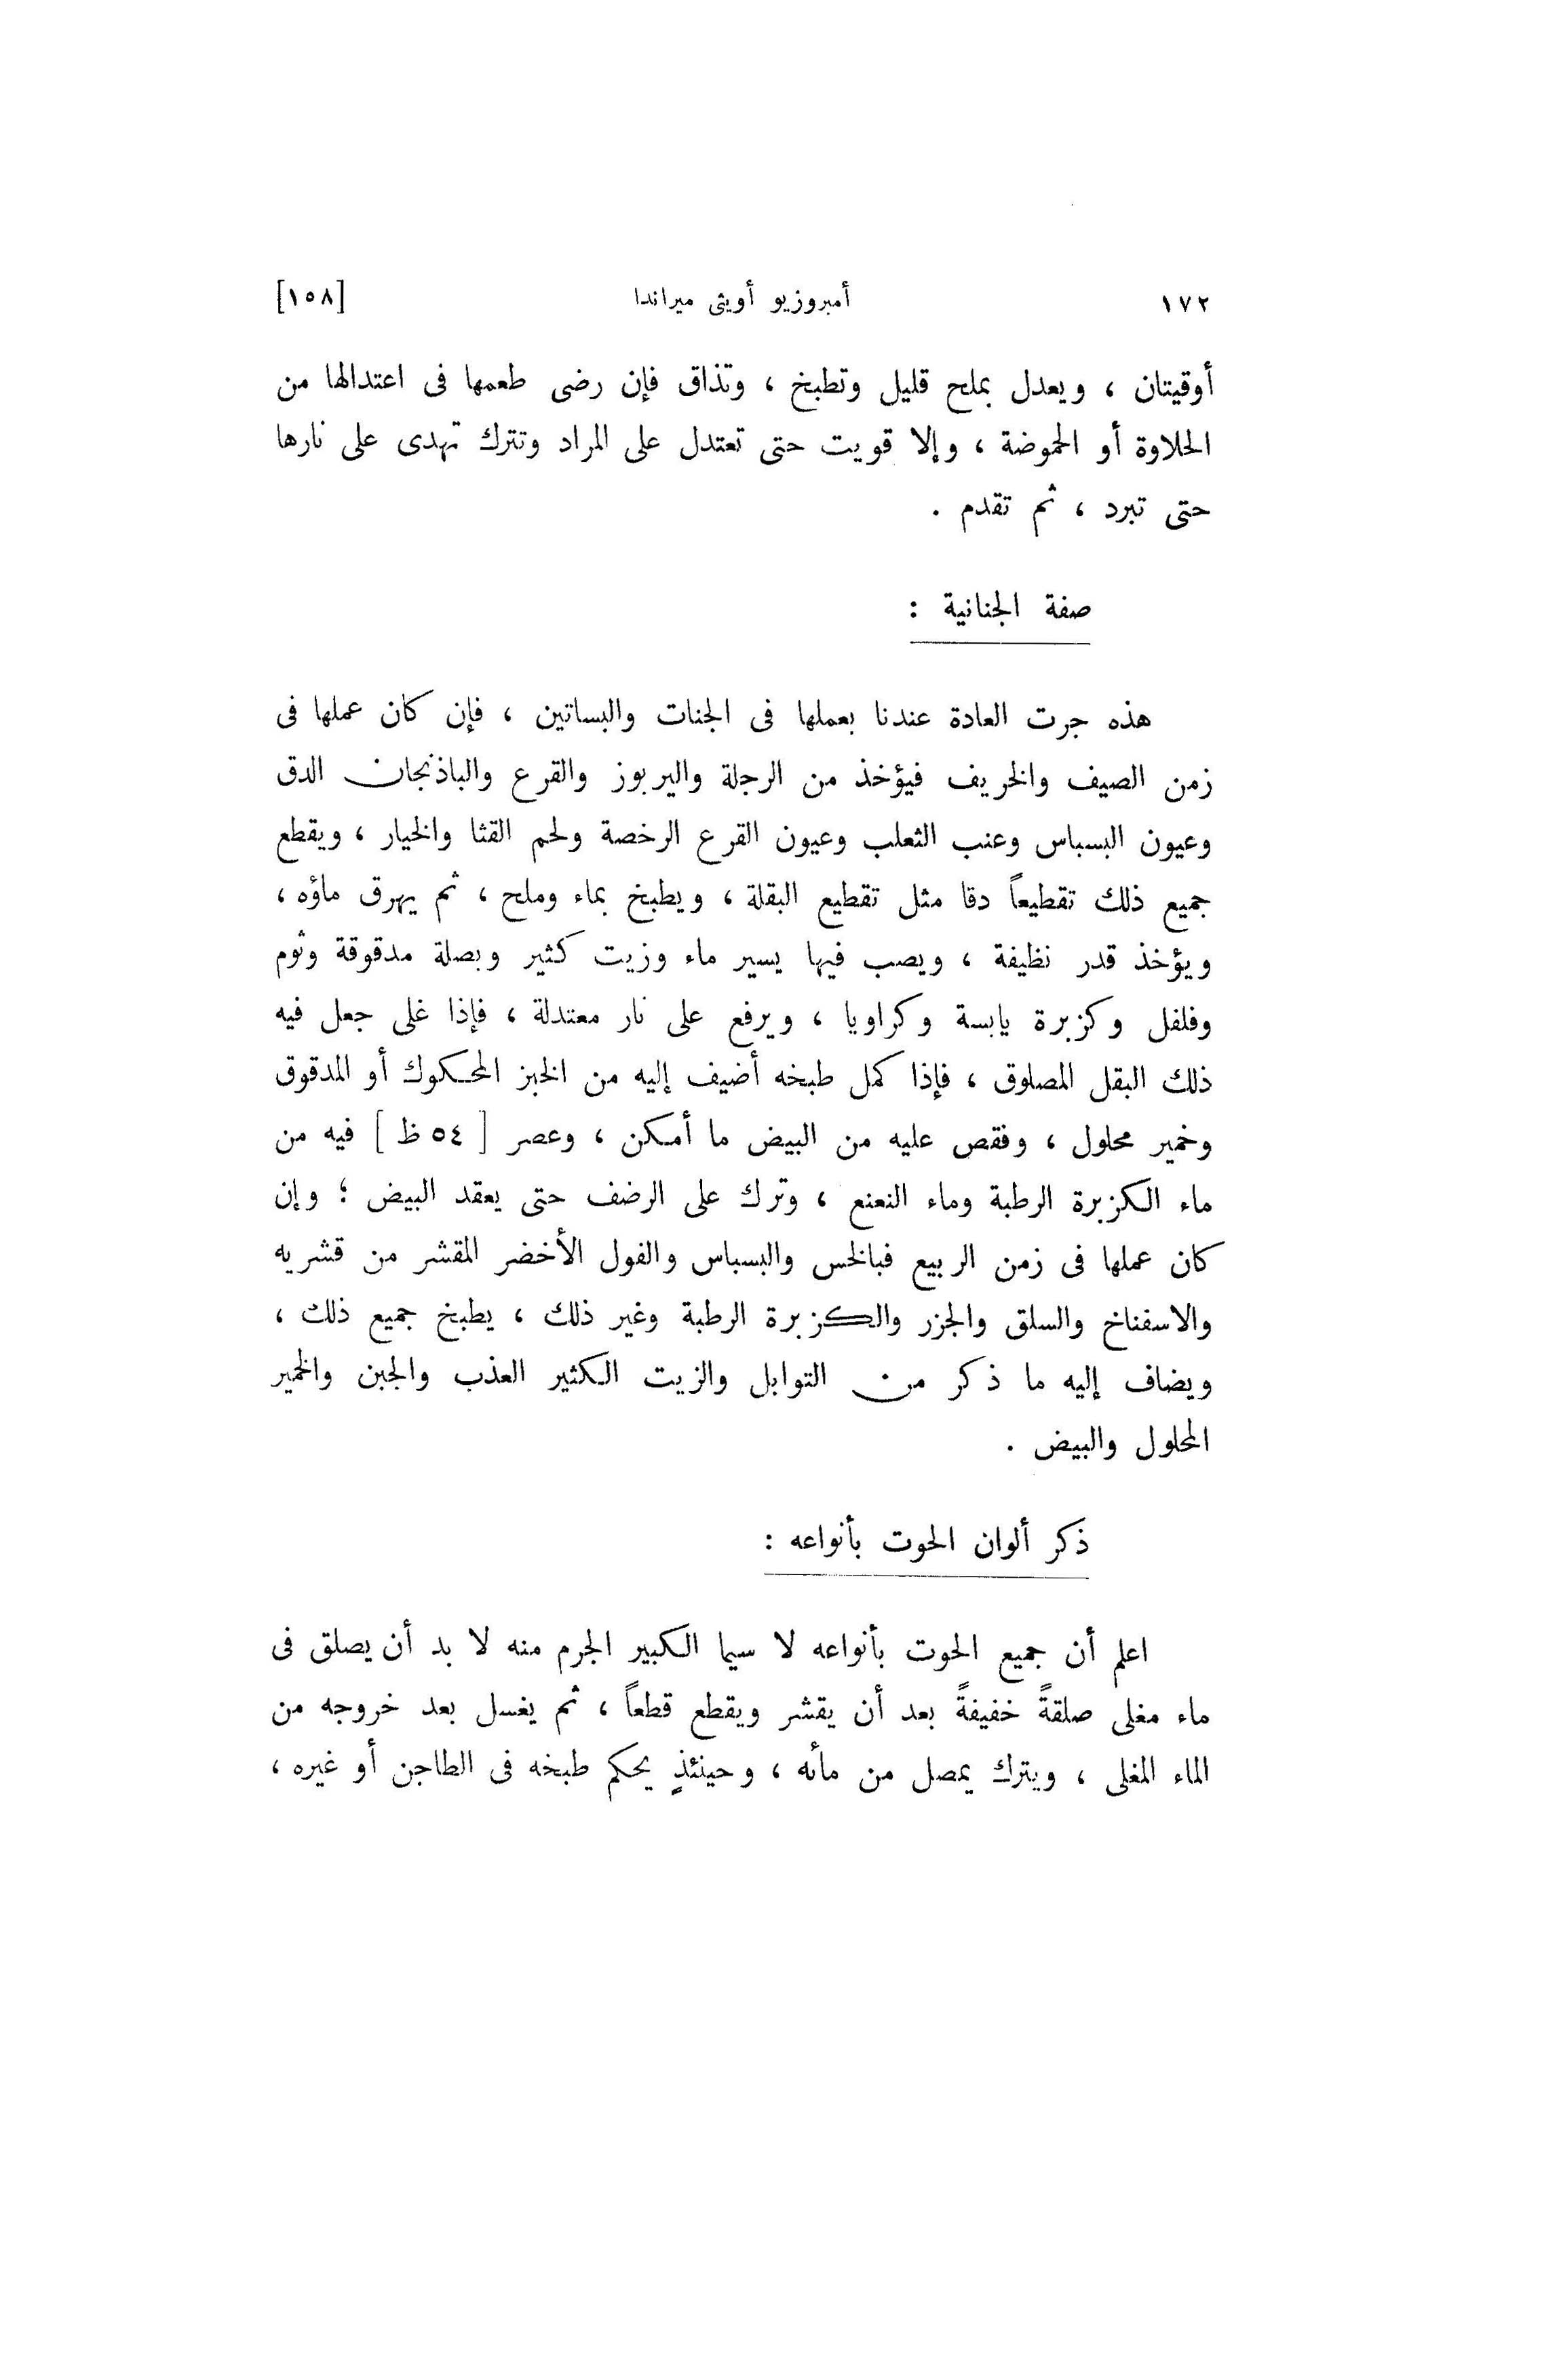 ١٧٢ أمبروزيو أويثى ميراندا [١٥٨]
أوقيتان ، ويعدل بملح قليل وتطبخ ، وتذاق فإن رضى طعمها فى اعتدالها من
الحلاوة أو الحموضة ، وإلا قويت حتى تعتدل على المراد وتترك تهدى على نارها
حتى تبرد ، ثم تقدم .
صفة الجنانية :
هذه جرت العادة عندنا بعملها فى الجنات والبساتين ، فإن كان عملها فى
زمن الصيف والخريف فيؤخذ من الرجلة واليربوز والقرع والباذنجان الدق
وعيون البسباس وعنب الثعلب وعيون القرع الرخصة ولحم القثا والخيار ، ويقطع
جميع ذلك تقطيعاً دقا مثل تقطيع البقلة ، ويطبخ بماء وملح ، ثم يهرق ماؤه ،
ويؤخذ قدر نظيفة ، ويصب فيها يسير ماء وزيت كثير وبصلة مدقوقة وثوم
وفلفل وكزبرة يابسة وكراويا ، ويرفع على نار معتدلة ، فإذا غلى جعل فيه
ذلك البقل المصلوق ، فإذا كمل طبخه أضيف إليه من الخبز المحكوك أو المدقوق
وخمير محلول ، وفقص عليه من البيض ما أمكن ، وعصر [ ٥٤ ظ ] فيه من
ماء الكزبرة الرطبة وماء النعنع ، وترك على الرضف حتى يعقد البيض ؛ وإن
كان عملها فى زمن الربيع فبالخس والبسباس والفول الأخضر المقشر من قشريه
والاسفناخ والسلق والجزر والكزبرة الرطبة وغير ذلك ، يطبخ جميع ذلك ،
ويضاف إليه ما ذكر من التوابل والزيت الكثير العذب والجبن والخمير
المحلول والبيض .
ذكر ألوان الحوت بأنواعه :
اعلم أن جميع الحوت بأنواعه لا سيما الكبير الجرم منه لا بد أن يصلق فى
ماء مغلى صلقةً خفيفةً بعد أن يقشر ويقطع قطعاً ، ثم يغسل بعد خروجه من
الماء المغلى ، ويترك يمصل من مائه ، وحينئذٍ يحكم طبخه فى الطاجن أو غيره ،